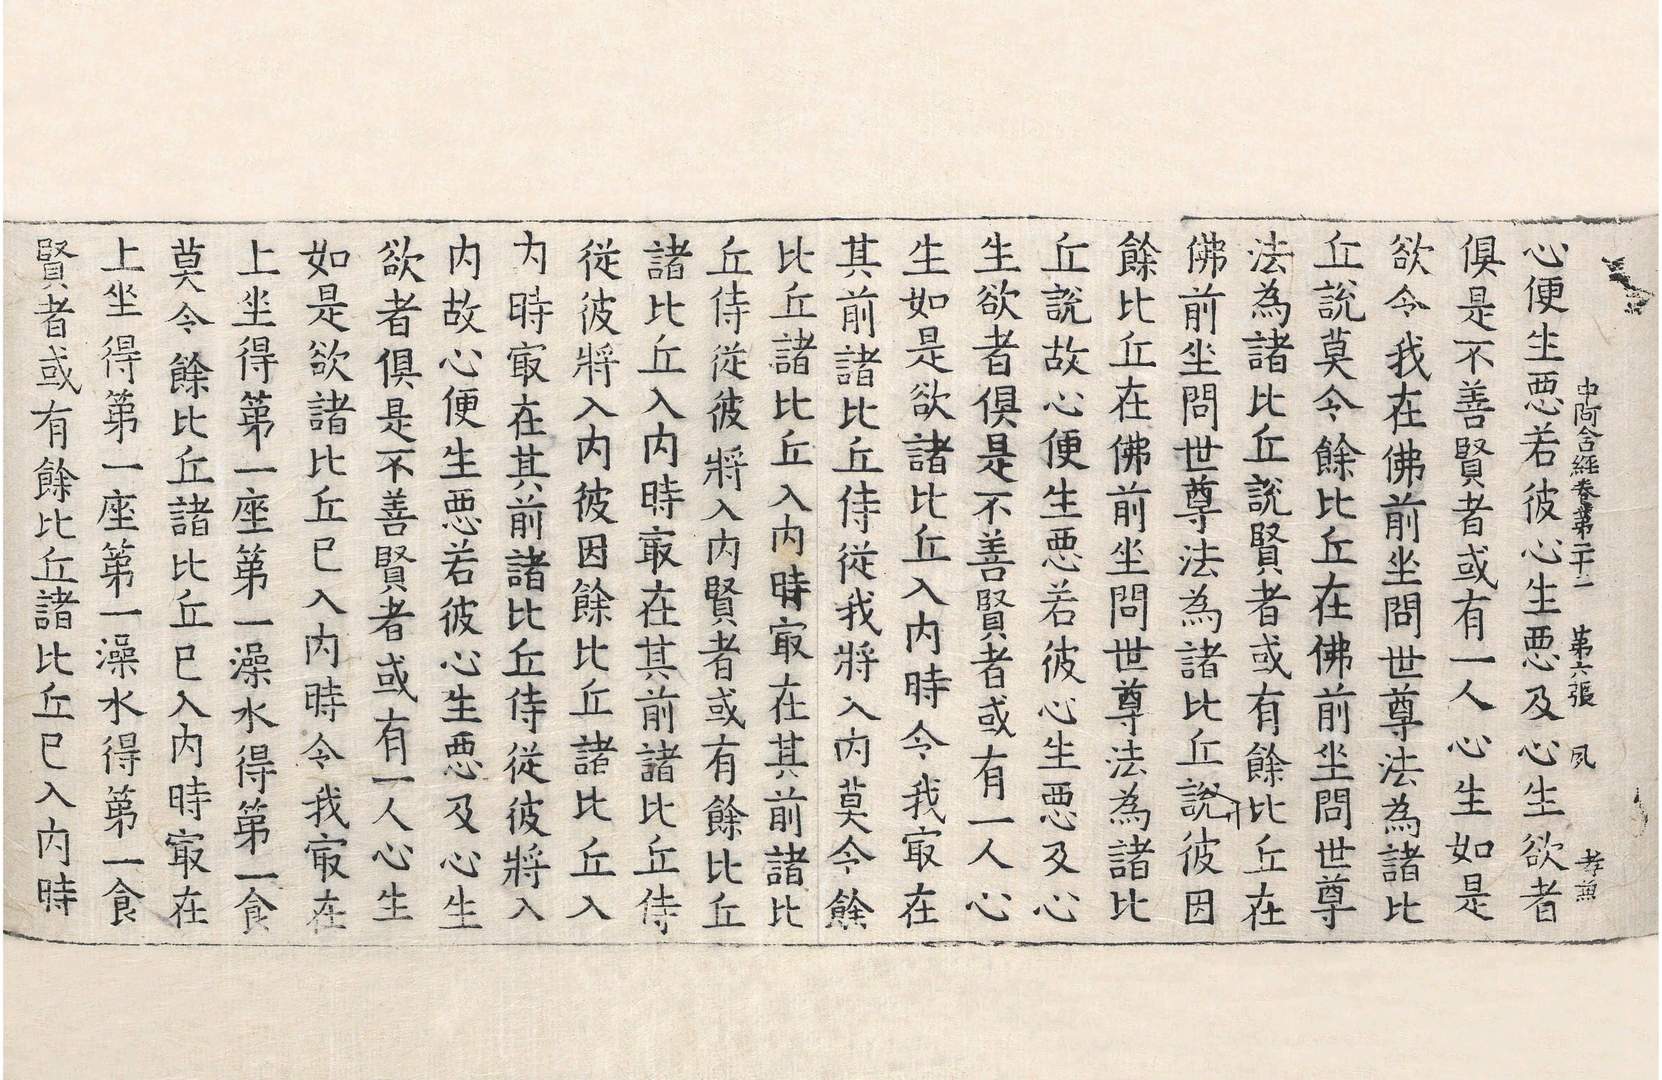 中阿含經卷第二十二 第六張 夙 孝兼
心便生惡若彼心生惡及心生欲者
俱是不善賢者或有一人心生如是
欲令我在佛前坐問世尊法為諸比
丘說莫令餘比丘在佛前坐問世尊
法為諸比丘說賢者或有餘比丘在
佛前坐問世尊法為諸比丘說彼因
餘比丘在佛前坐問世尊法為諸比
丘說故心便生惡若彼心生惡及心
生欲者俱是不善賢者或有一人心
生如是欲諸比丘入內時令我㝡在
其前諸比丘侍從我將入內莫令餘
比丘諸比丘入內時㝡在其前諸比
丘侍從彼將入內賢者或有餘比丘
諸比丘入內時㝡在其前諸比丘侍
從彼將入內彼因餘比丘諸比丘入
內時㝡在其前諸比丘侍從彼將入
內故心便生惡若彼心生惡及心生
欲者俱是不善賢者或有一人心生
如是欲諸比丘已入內時令我㝡在
上坐得第一座第一澡水得第一食
莫令餘比丘諸比丘已入內時㝡在
上坐得第一座第一澡水得第一食
賢者或有餘比丘諸比丘已入內時